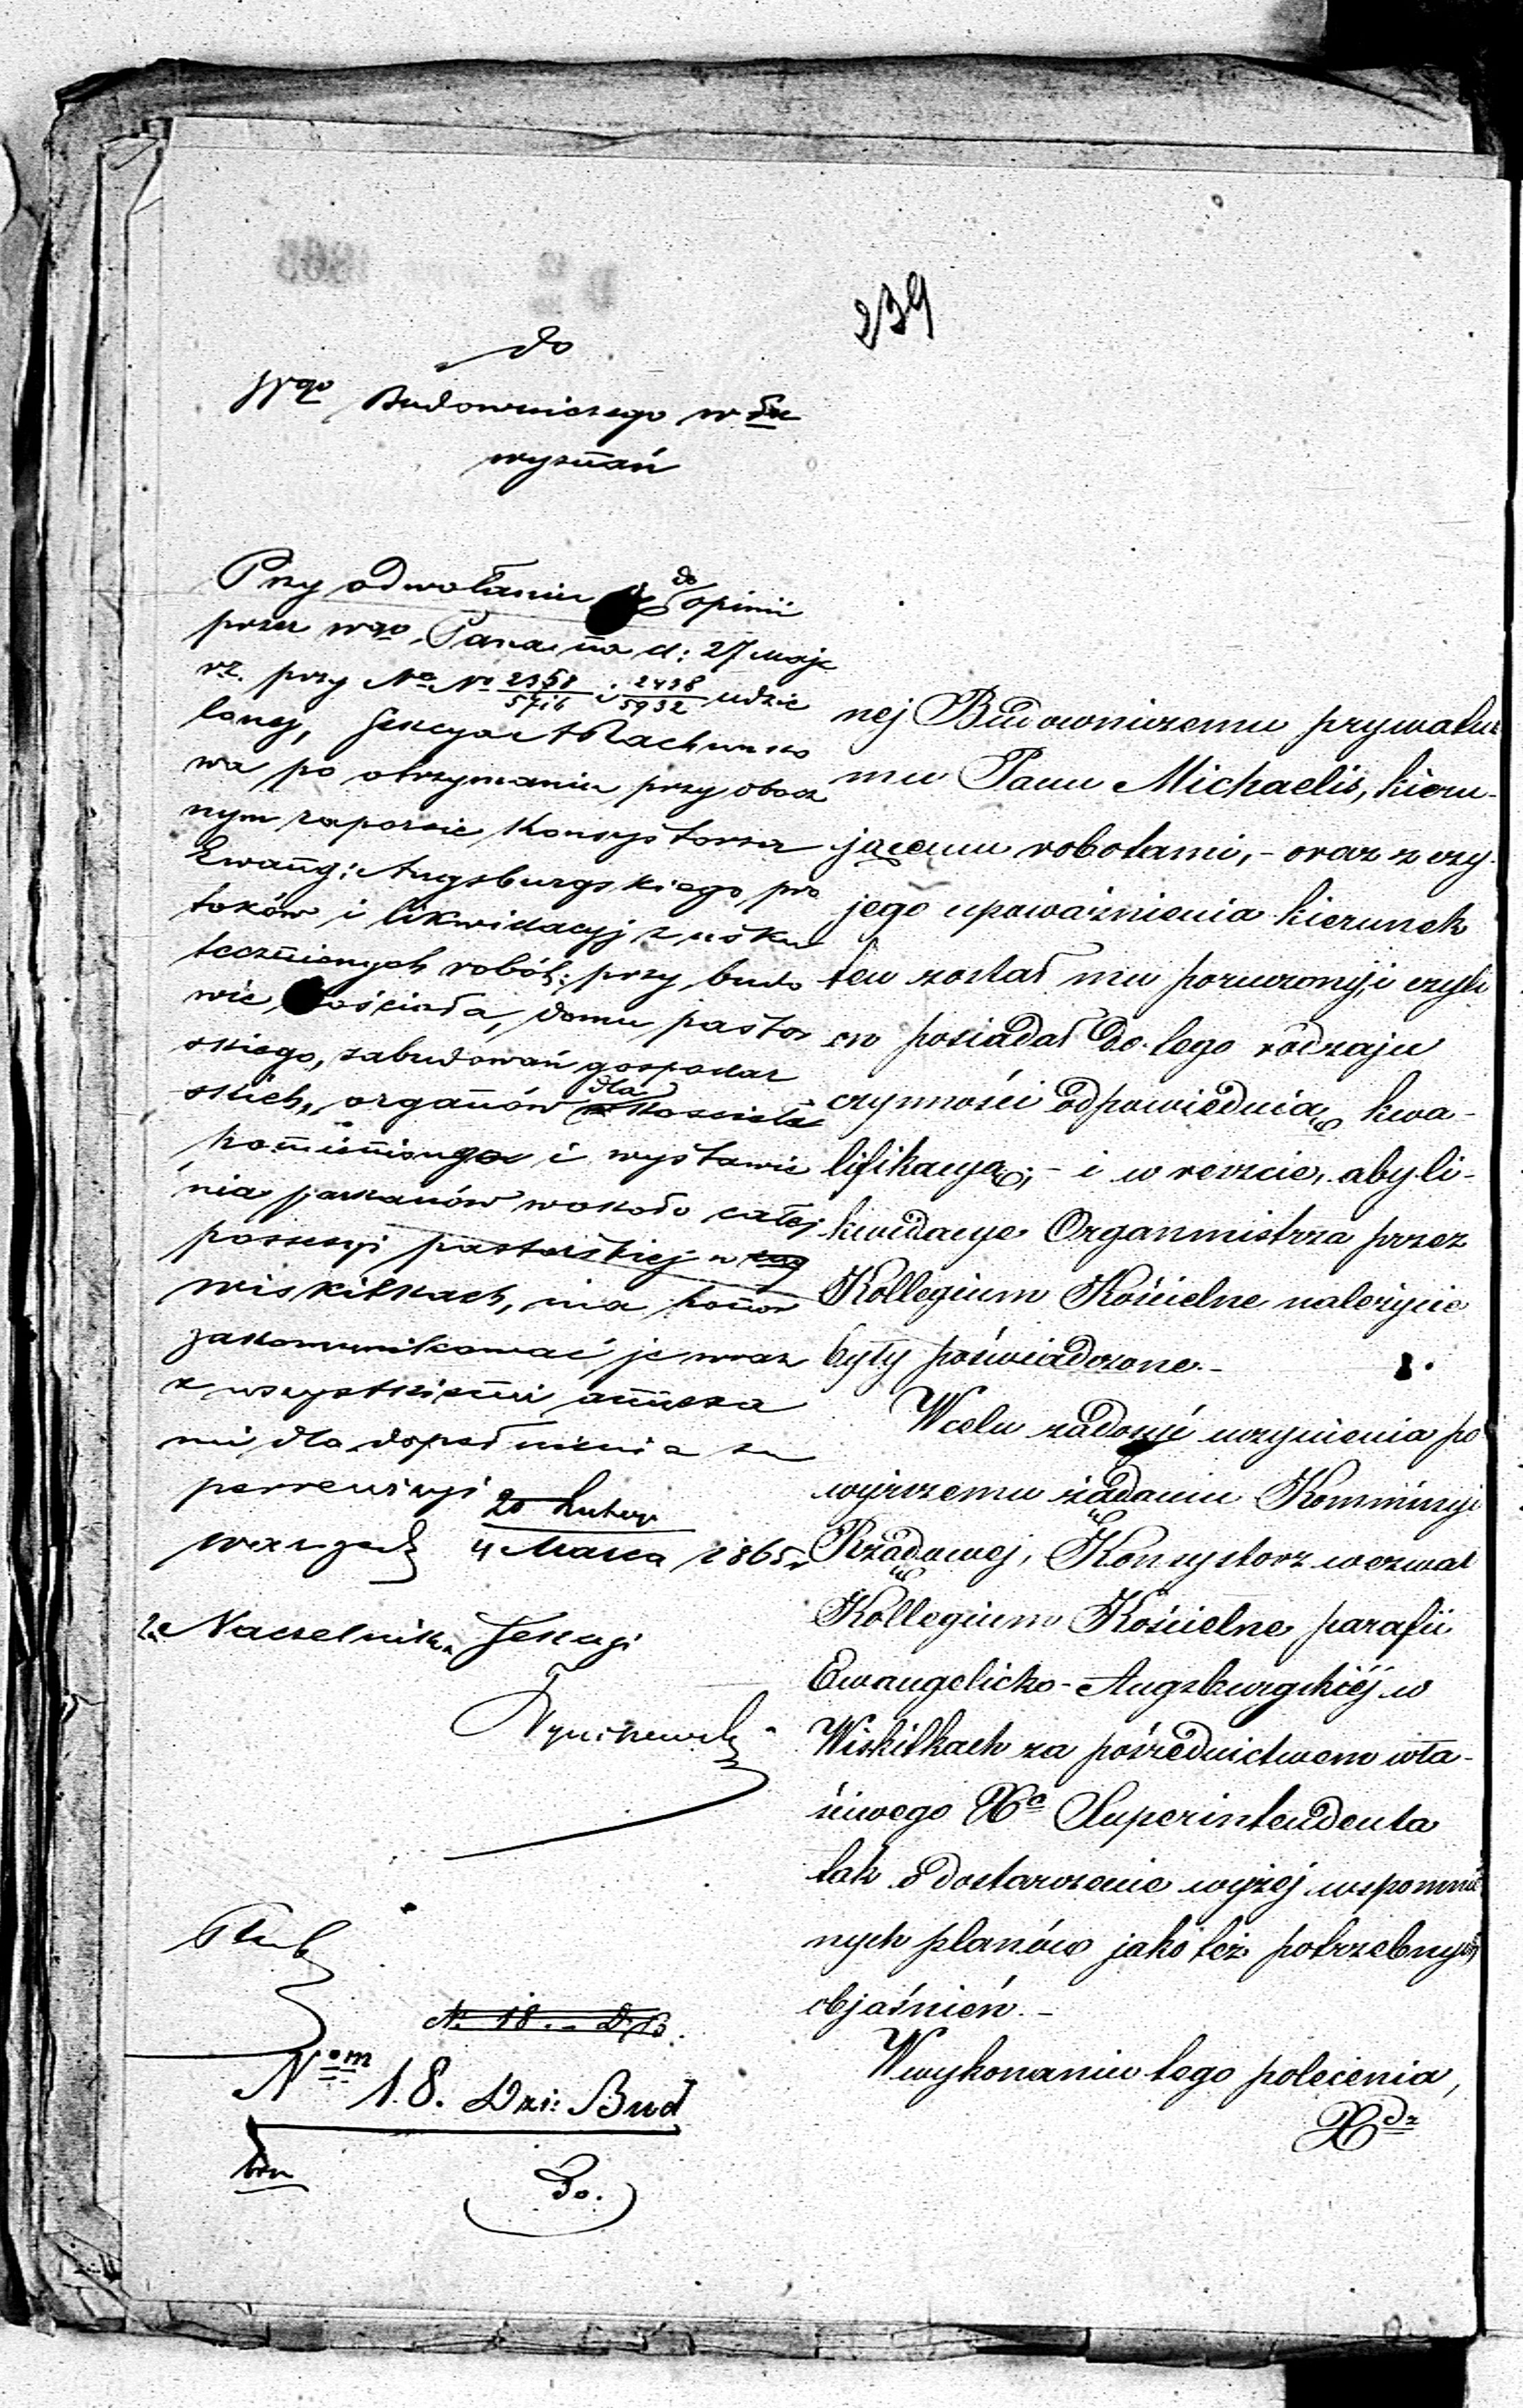 239
do
Wgo Budowniczego w Ko
wyznań
Przy odwołaniu do opinii
przez Wgo Pana na d: 27 Maja
rz. przy No No 2358/5716 i 2428/5932 udzie
lonej, Sekcya Rachunko
wa po otrzymaniu przy obocz
nym raporcie Konsystorza
Ewang: Augsburgskiego pro
toków i likwidacyj z usku
tecznionych robót: przy budo
wie kościoła, domu pastor
skiego, zabudowań gospodar
skich, organów dla kościoła
i wystawie
nia parkanów wokoło całej
possesyi pastorskiej w
Wiskitkach, ma honor
zakomunikować je wraz
z wszystkiemi anneksa
mi dla dopełnienia su
perrewizyi
20 Lutego
Warszawa 4 Marca 1865 r
za Naczelnika Sekcyi
N. 18. D. B.
Nom 18. Dzi: Bud
nej Budowniczemu prywatne
mu Panu Michaelis, kieru-
jącemu robotami, - oraz z czy-
jego upoważnienia kierunek
ten został mu poruczony, i czyli
on posiadał do tego rodzaju
czynności odpowiednią kwa-
lifikacyą; - i w reszcie, aby li-
kwidacye Organmistrza przez
Kollegium Kościelne należycie
były poświadczone. -
W celu zadosyć uczynienia po
wyższemu żądaniu Kommissyi
Rządowej, Konsystorz wezwał
Kollegium Kościelne parafii
Ewangelicko-Augsburgskiéj w
Wiskitkach za pośrednictwem wła-
ściwego Xa Superintendenta
tak o dostarczenie wyżej wspomnio
nych planów jako też potrzebnych
objaśnień. -
W wykonaniu tego polecenia,
Xdz